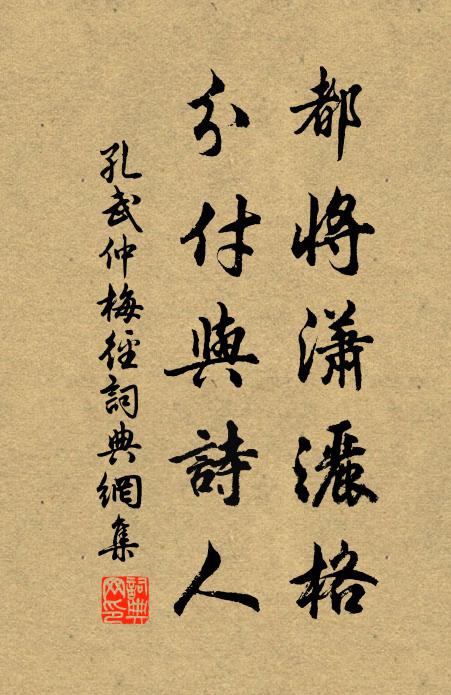 都將瀟灑格
分付與詩人
孔武仲梅徑詞典網集
詞典網印